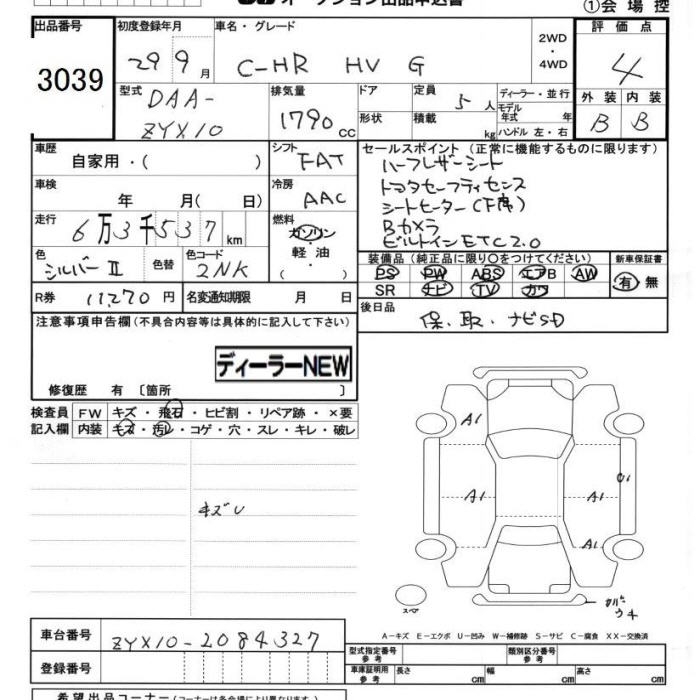 オークション出品申込書
①会場控
出品番号
3039
初度登録年月
29 9月
車名・グレード
C-HR HV G
2WD
・
4WD
評価点
4
型式
DAA-
ZYX10
排気量
1790cc
ドア
形状
定員
5人
積載
kg
ディーラー・並行
モデル年式 年
ハンドル 左・右
外装 内装
B B
車歴
自家用・( )
シフト
FAT
セールスポイント(正常に機能するものに限ります)
ハーフレザーシート
トヨタセーフティセンス
シートヒーター(F席)
Bカメラ
ビルトインETC2.0
車検
年 月( 日)
冷房
AAC
走行
6万3千537km
燃料
ガソリン
・
軽油
・
( )
色
シルバーII
色替
色コード
2NK
装備品(純正品に限り○をつけてください)
PS PW ABS エアB AW
SR ナビ TV カワ
新車保証書
有 無
R券 11,270円
名変通知期限 月 日
後日品
保、取、ナビSD
注意事項申告欄(不具合内容等は具体的に記入して下さい)
ディーラーNEW
修復歴 有 〔箇所 〕
検査員
記入欄
FW キズ・飛石・ヒビ割・リペア跡・×要
内装 キズ・汚レ・コゲ・穴・スレ・キレ・破レ
キズU
A1
A1
A1
A1
U1
スペア
A-キズ E-エクボ U-凹み W-補修跡 S-サビ C-腐食 XX-交換済
車台番号
ZYX10-2084327
登録番号
型式指定番号
参考
類別区分番号
参考
車庫証明用
参考
長さ cm 幅 cm 高さ cm
希望出品コーナー(コーナーは各会場により異なります)